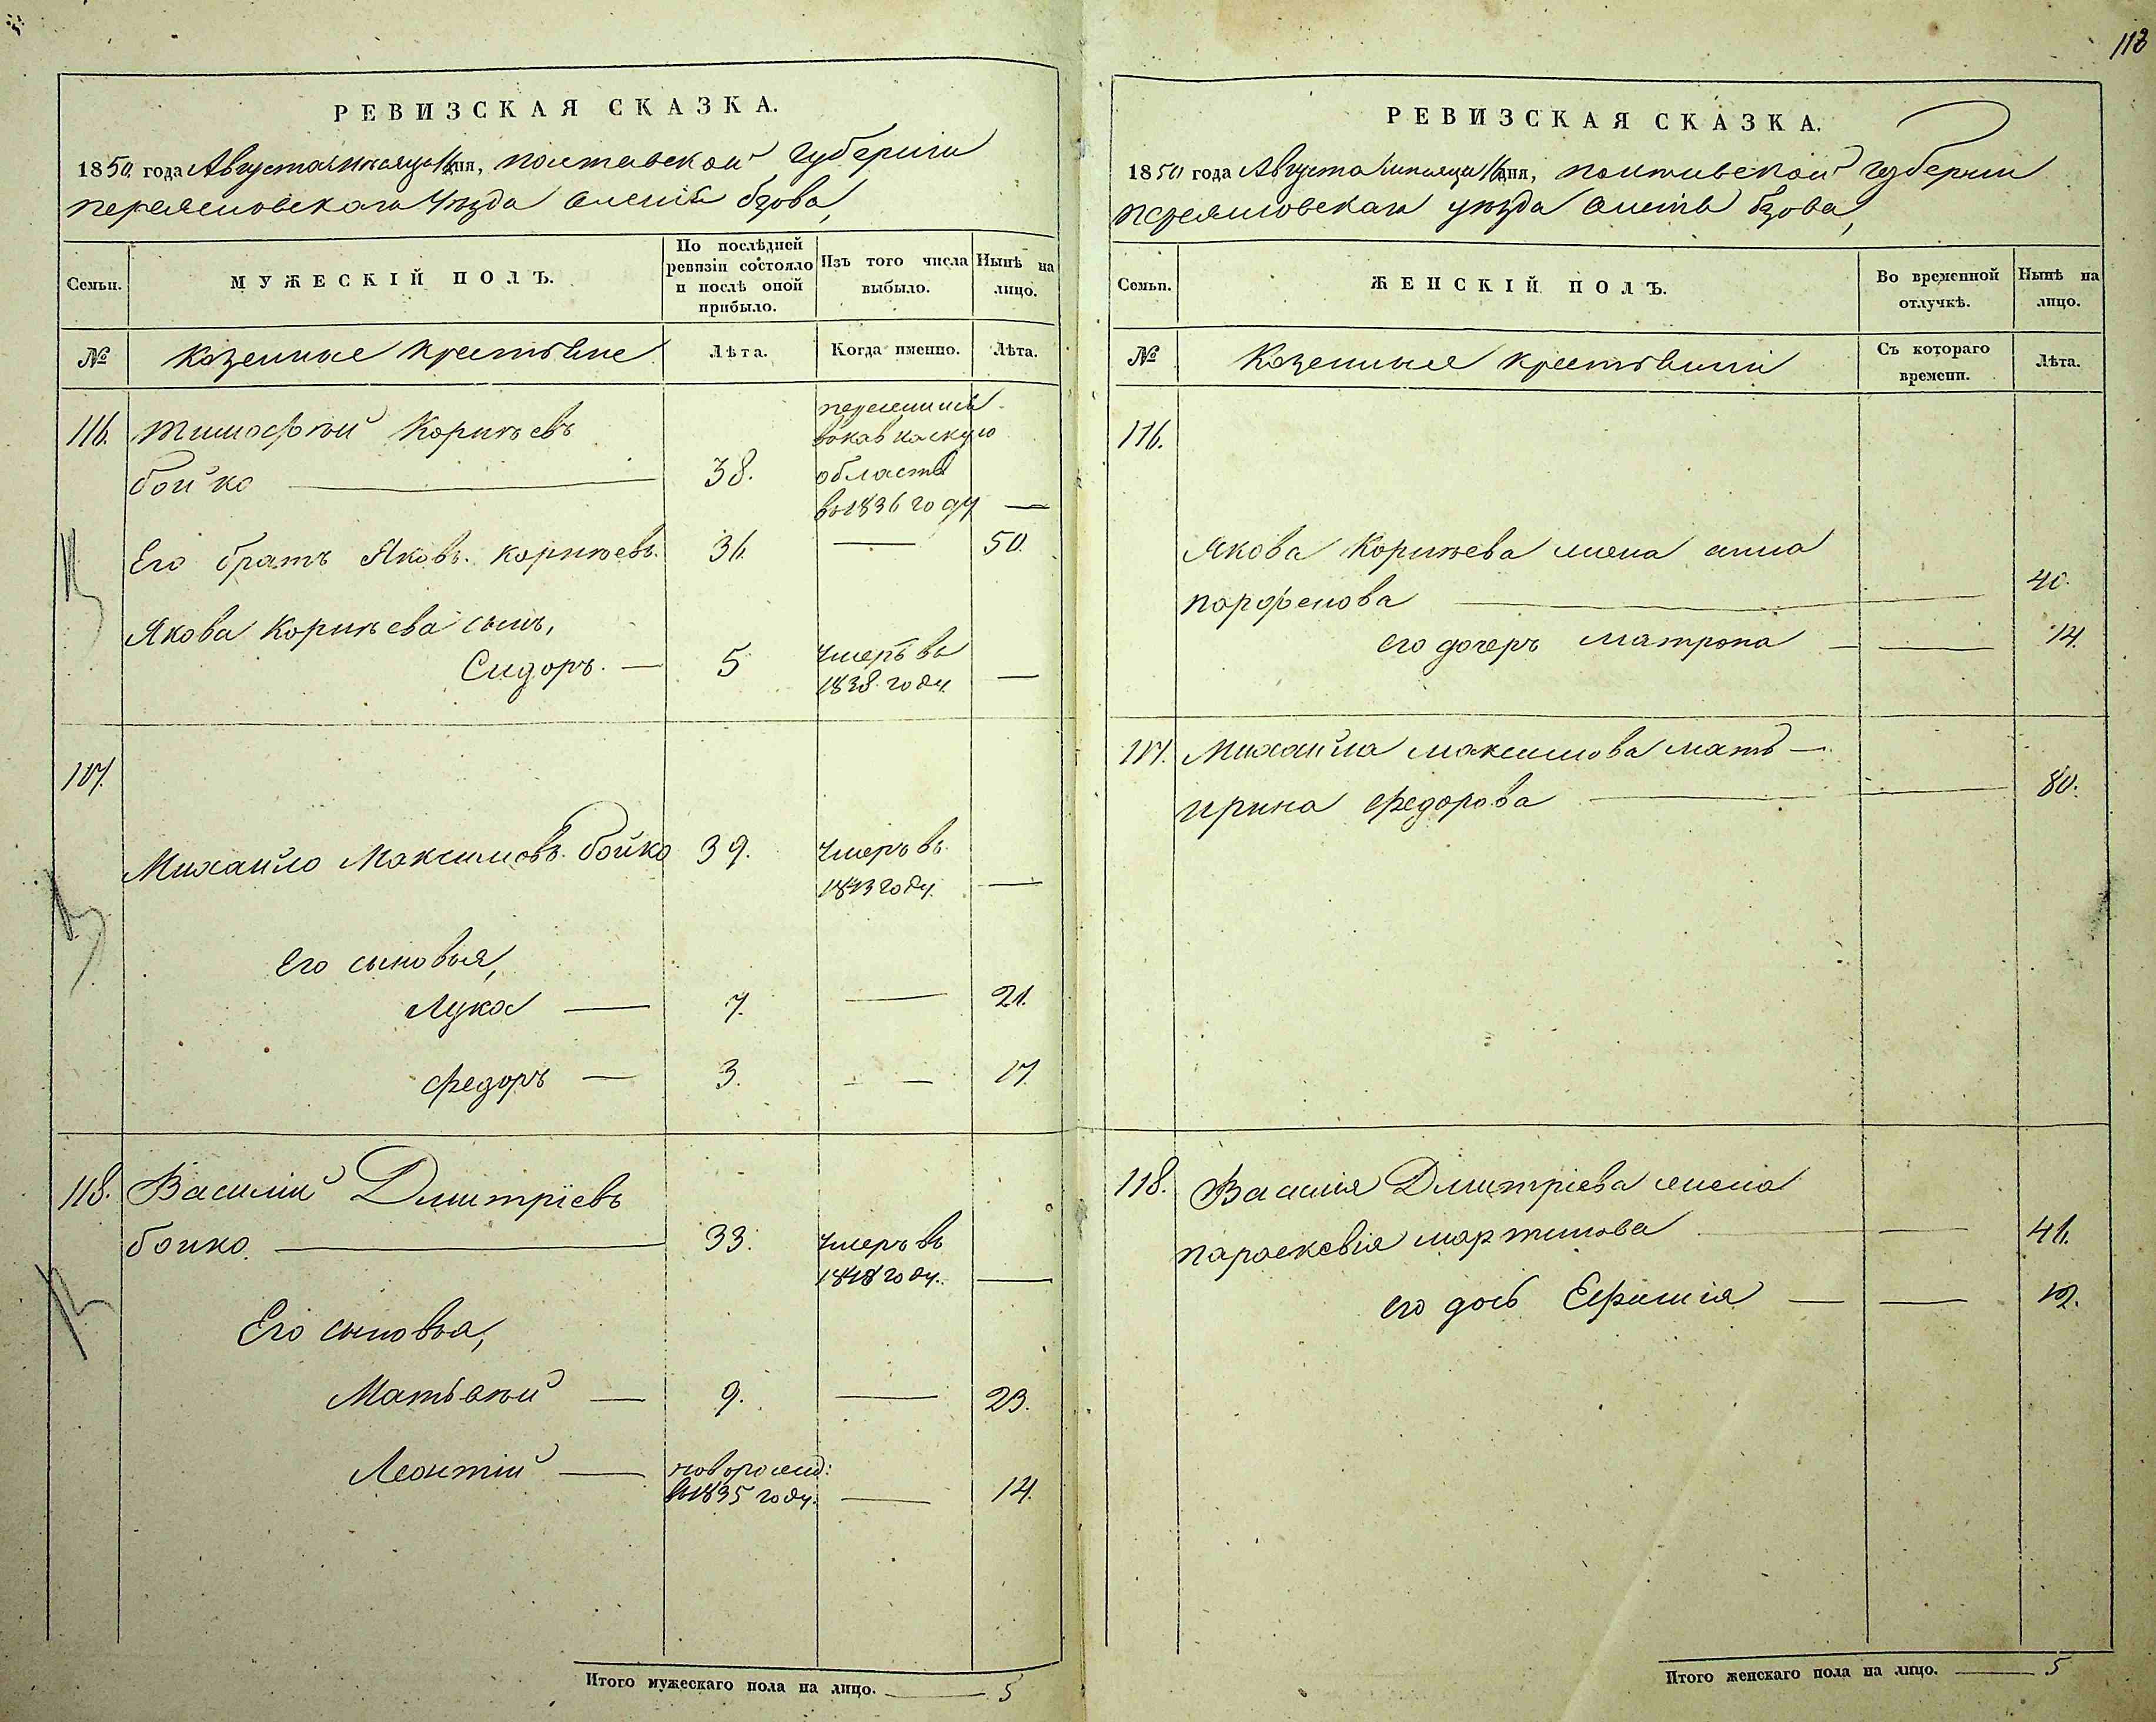 113
РЕВИЗСКАЯ СКАЗКА.
1850 года Августа месяца 16 дня, полтавской Губернии
переясловскаго Уѣзда Бзова,
Семьи.
МУЖЕСКІЙ ПОЛЪ.
По послѣдней ревизіи состояло и послѣ оной прибыло.
Изъ того числа выбыло.
Нынѣ на лицо.
№
Казенные крестьяне
Лѣта.
Когда именно.
Лѣта.
116. Тимофѣй Корнѣевъ
бойко 38. переселился вокавкаскую область въ 1836 году —
Его братъ Яковъ. корнѣевъ. 36. — 50.
Якова Корнѣева сынъ,
Сидоръ. — 5 Умеръ въ 1838 году —
117.
Михайло Максимовъ. бойко 39. Умеръ въ 1843 году —
его сыновья,
Лука — 7. — 21.
Федоръ — 3. — 17.
118. Василий Дмитріевъ
бойко. — 33. Умеръ въ 1848 году. —
Его сыновья,
Матвѣй — 9. — 23.
Леонтій — новорожд: въ 1835 году. — 14.
Итого мужескаго пола на лицо. — 5
РЕВИЗСКАЯ СКАЗКА.
1850 года Августа месяца 16 дня, полтавской Губернии
переясловскаго уѣзда Бзова,
Семьи.
ЖЕНСКІЙ ПОЛЪ.
Во временной отлучкѣ.
Нынѣ на лицо.
№
Казенные крестьянки
Съ котораго времени.
Лѣта.
116.
Якова Корнѣева жена анна
порфенова — 40.
его дочеръ матрона — — 14.
117. Михайла максимова мать —
ирина федорова — — 80.
118. Василия Дмитріева жена
параскевія мартинова — — 41.
его дочь Ефимія — — 12.
Итого женскаго пола на лицо. — 5